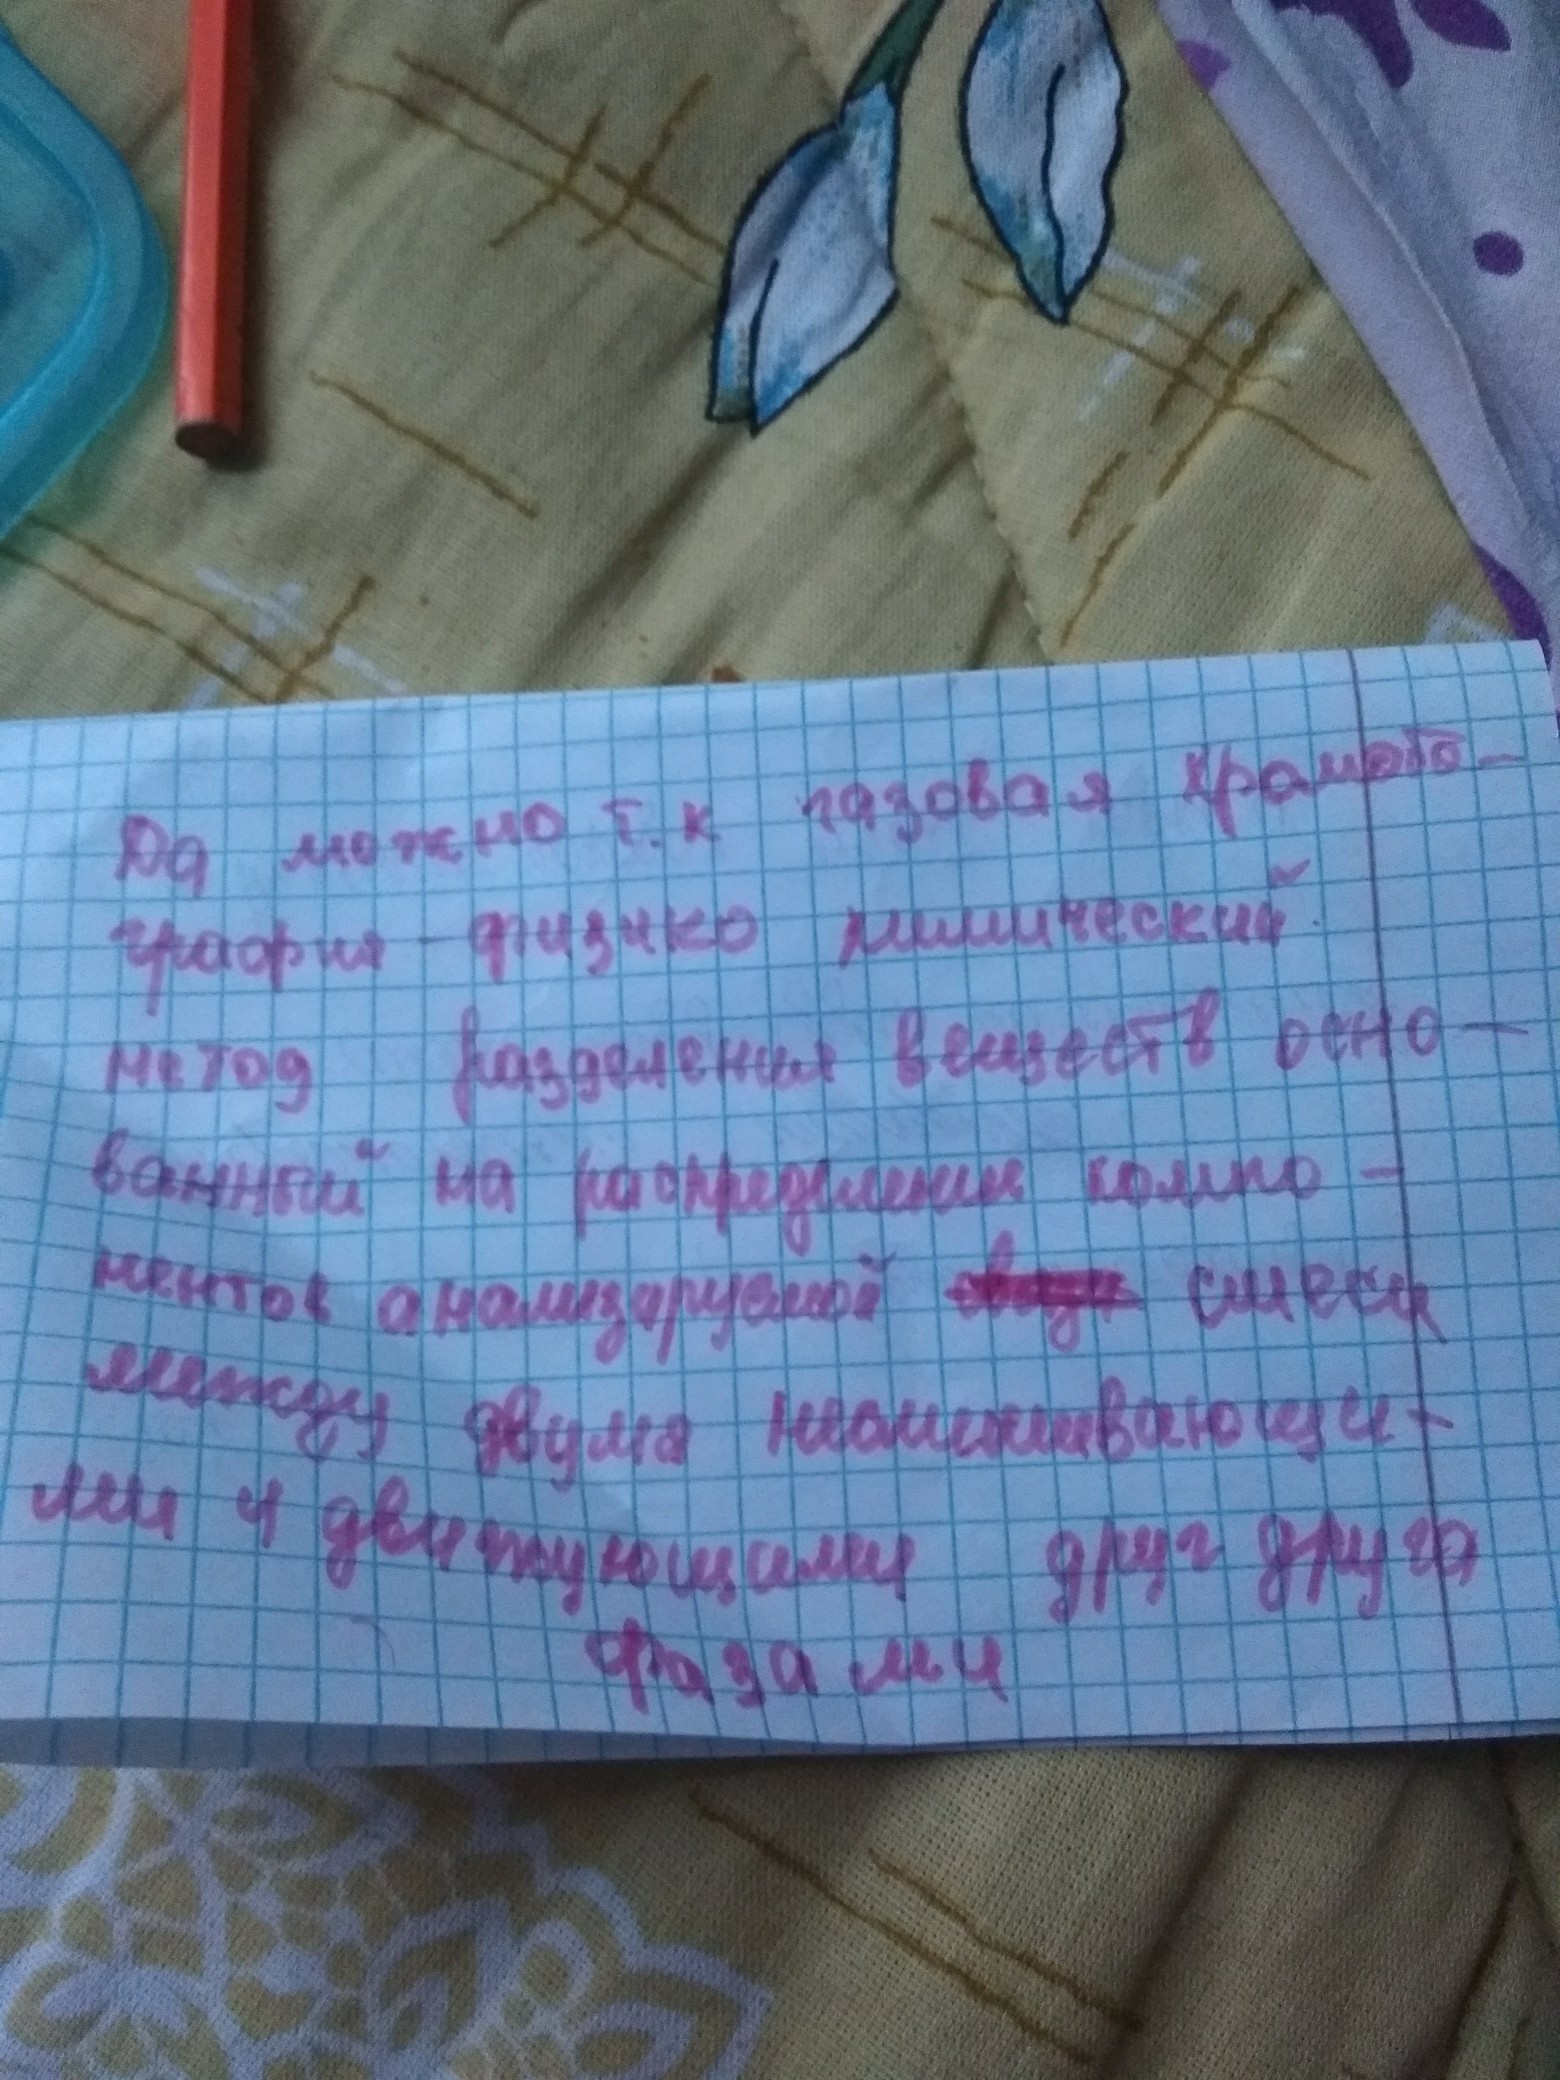 Да можно т.к газовая храмато-
графия - физико химический
метод разделения веществ осно-
ванный на распределении компо-
нентов анализируемой смеси
между двумя
ми и движующими друг друга
фазами